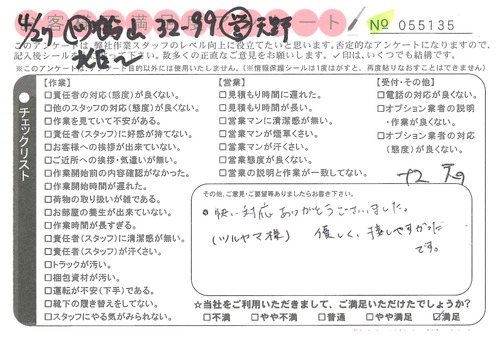 4/27 鶴山 32-99 営 天野
お客様満足度アンケート
№ 055135
このアンケートは、弊社作業スタッフのレベル向上に役立てたいと思います。否定的なアンケートになりますので、
記入後シールを 下さい。数多くの正直なご意見をお願いします。✓印は、いくつでも結構です。
※このアンケートは、 目的以外には使用いたしません。(※情報保護シールは1度はがすと、再度貼りなおすことはできません)
チェックリスト
【作業】
□責任者の対応(態度)が良くない。
□他のスタッフの対応(態度)が良くない。
□作業を見ていて不安がある。
□責任者(スタッフ)に好感が持てない。
□お客様への挨拶が出来ていない。
□ご近所への挨拶・気遣いが無い。
□作業開始前の内容確認がなかった。
□作業開始時間が遅れた。
□荷物の取り扱いが雑である。
□お部屋の養生が出来ていない。
□作業時間が長すぎる。
□責任者(スタッフ)に清潔感が無い。
□責任者(スタッフ)が汗くさい。
□トラックが汚い。
□梱包資材が汚い。
□運転が不安(下手)である。
□靴下の履き替えをしてない。
□スタッフにやる気がみられない。
【営業】
□見積もり時間に遅れた。
□見積もり時間が長い。
□営業マンに清潔感が無い。
□営業マンが煙草くさい。
□営業マンが汗くさい。
□営業態度が良くない。
□営業の説明と作業が一致してない。
【受付・その他】
□電話の対応が良くない。
□オプション業者の説明
・作業が良くない。
□オプション業者の対応
(態度)が良くない。
その他、ご意見・ご要望等ありましたらお書き下さい。
快い対応ありがとうございました。
(ツルヤマ様) 優しく、接しやすかった
です。
☆当社をご利用いただきまして、ご満足いただけたでしょうか?
□不満 □やや不満 □普通 □やや満足 ☑満足